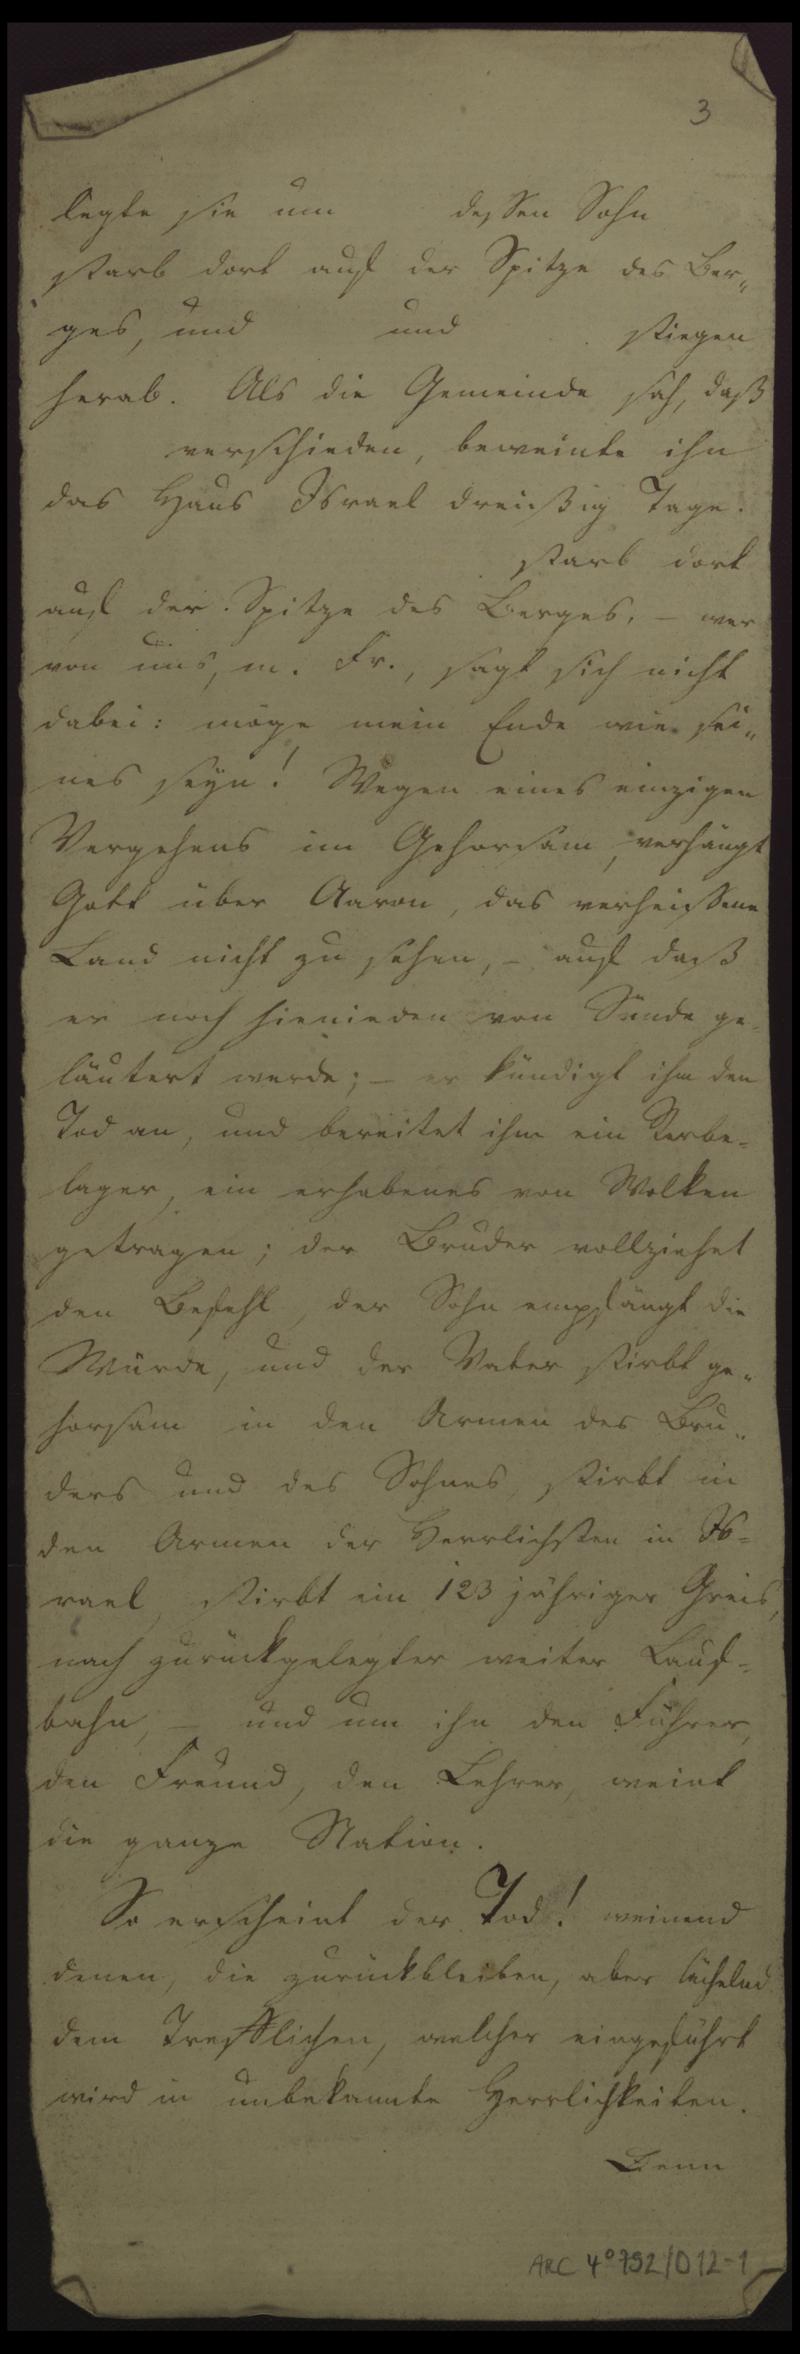 3
legte sie um dessen Sohn
starb dort auf der Spitze des Ber„
ges, und und stiegen
herab. Als die Gemeinde sah, daß
verschieden, beweinte ihn
das Haus Israel dreißig Tage.
starb dort
auf der Spitze des Berges, – wer
von uns, m. Fr., sagt sich nicht
dabei: möge mein Ende wie sei„
nes seyn! Wegen eines einzigen
Vergehens im Gehorsam, verhängt
Gott über Aaron, das verheissene
Land nicht zu sehen, – auf daß
er noch hienieden von Sünde ge-
läutert werde; – er kündigt ihm den
Tod an, und bereitet ihm ein Sterbe-
lager, ein erhabenes von Wolken
getragen; der Bruder vollziehet
den Befehl, der Sohn empfängt die
Würde, und der Vater stirbt ge„
horsam in den Armen des Bru„
ders und des Sohnes, stirbt in
den Armen der Herrlichsten in Is-
rael, stirbt ein 123 jähriger Greis,
nach zurückgelegter weiter Lauf-
bahn, – und um ihn den Führer,
den Freund, den Lehrer, weint
die ganze Nation.
So erscheint der Tod! weinend
denen, die zurückbleiben, aber lächelnd
dem Trefflichen, welcher eingeführt
wird in unbekannte Herrlichkeiten.
Denn
ARC 4° 792/D12-1